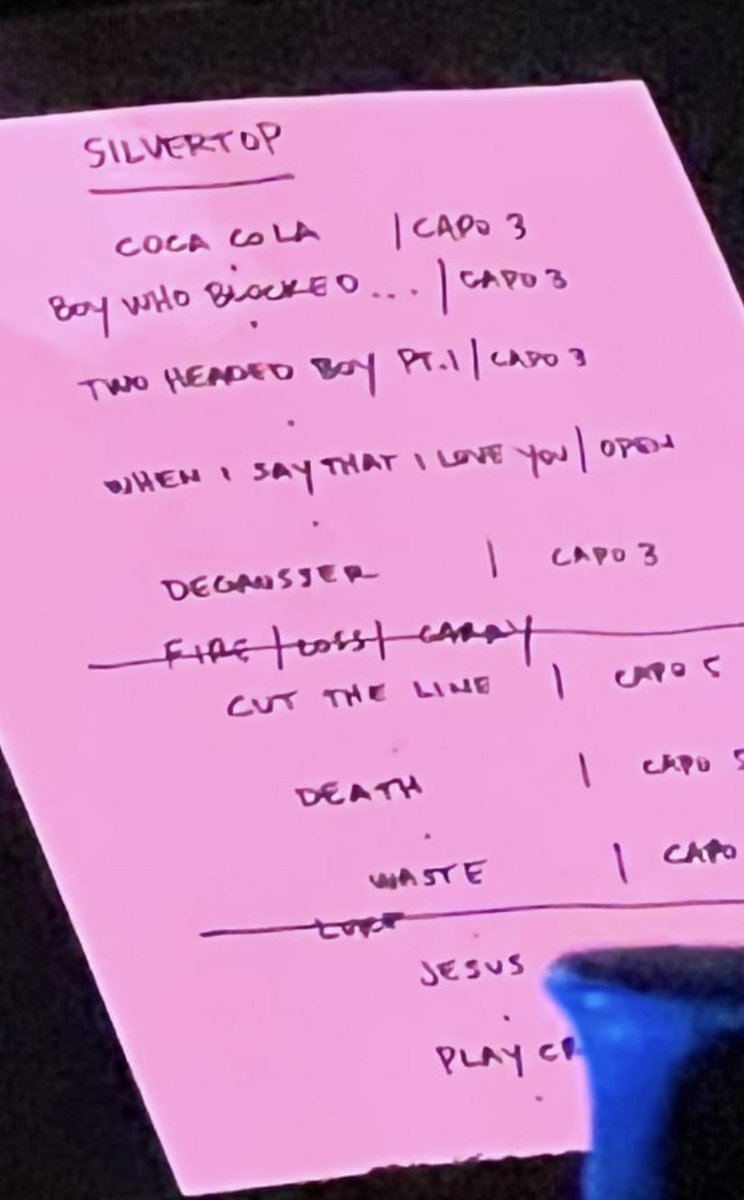 SILVERTOP
COCA COLA | CAPO 3
BOY WHO BLOCKED... | CAPO 3
TWO HEADED BOY PT.1 | CAPO 3
WHEN I SAY THAT I LOVE YOU | OPEN
DEGAUSSER | CAPO 3
FIRE | LOSS | CARRY
CUT THE LINE | CAPO 5
DEATH | CAPO 5
WASTE | CAPO
JESUS
PLAY CR